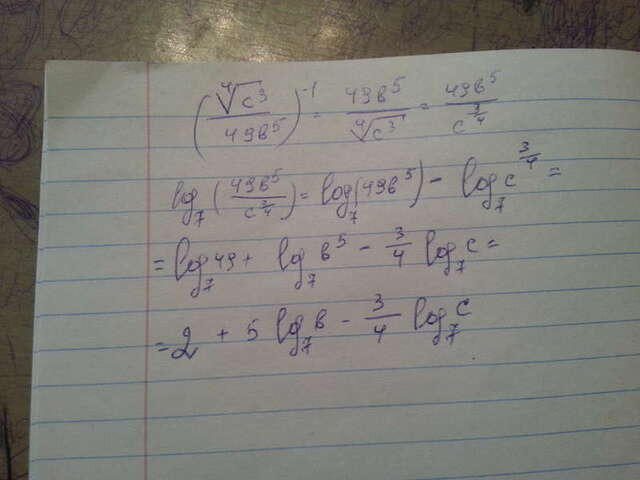 (⁴√c³ / 49в⁵)⁻¹ = 49в⁵ / ⁴√c³ = 49в⁵ / c^(3/4)
log₇(49в⁵ / c^(3/4)) = log₇(49в⁵) − log₇c^(3/4) =
= log₇49 + log₇в⁵ − 3/4 log₇c =
= 2 + 5 log₇в − 3/4 log₇c